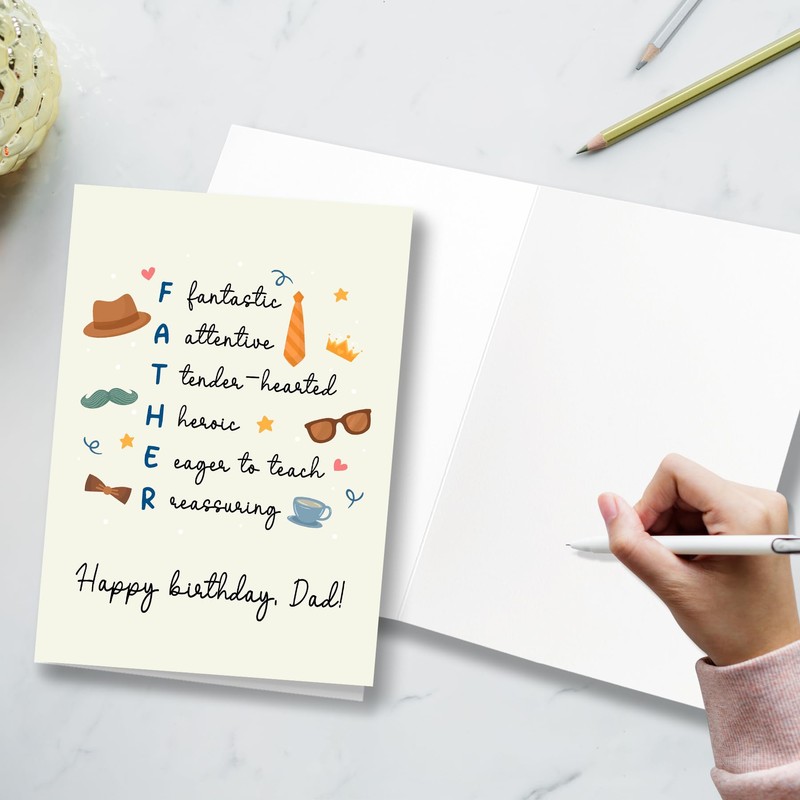 F fantastic
A attentive
T tender-hearted
H heroic
E eager to teach
R reassuring
Happy birthday, Dad!